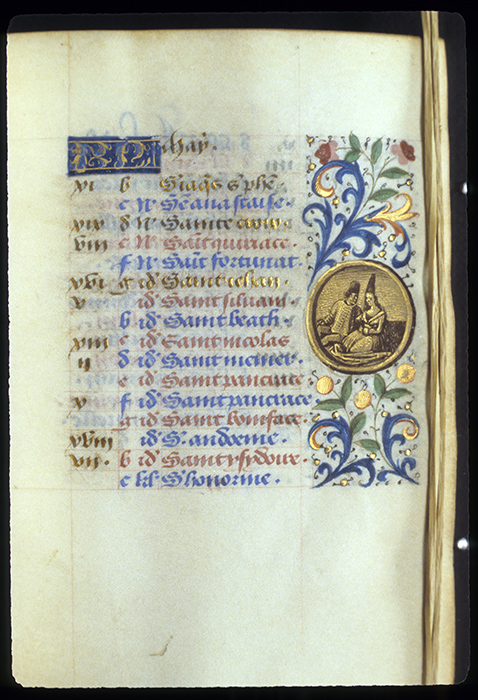 May.
vi b S iaq̃s s phẽ.
c N Sẽ anastaise.
xix d N Sainte
viii e N Saīt quiriace.
f N Saīt fortunat.
xvi g id Saint iehan.
v id Saint siluain.
b id Saint beath.
xiii c id Saint nicolas
ii d id Saint
e id Saint pancrace
x f id Saint pancrace
g id Saint boniface.
xviii id S.
vii b id Saint ysydore.
c kl S honorine.